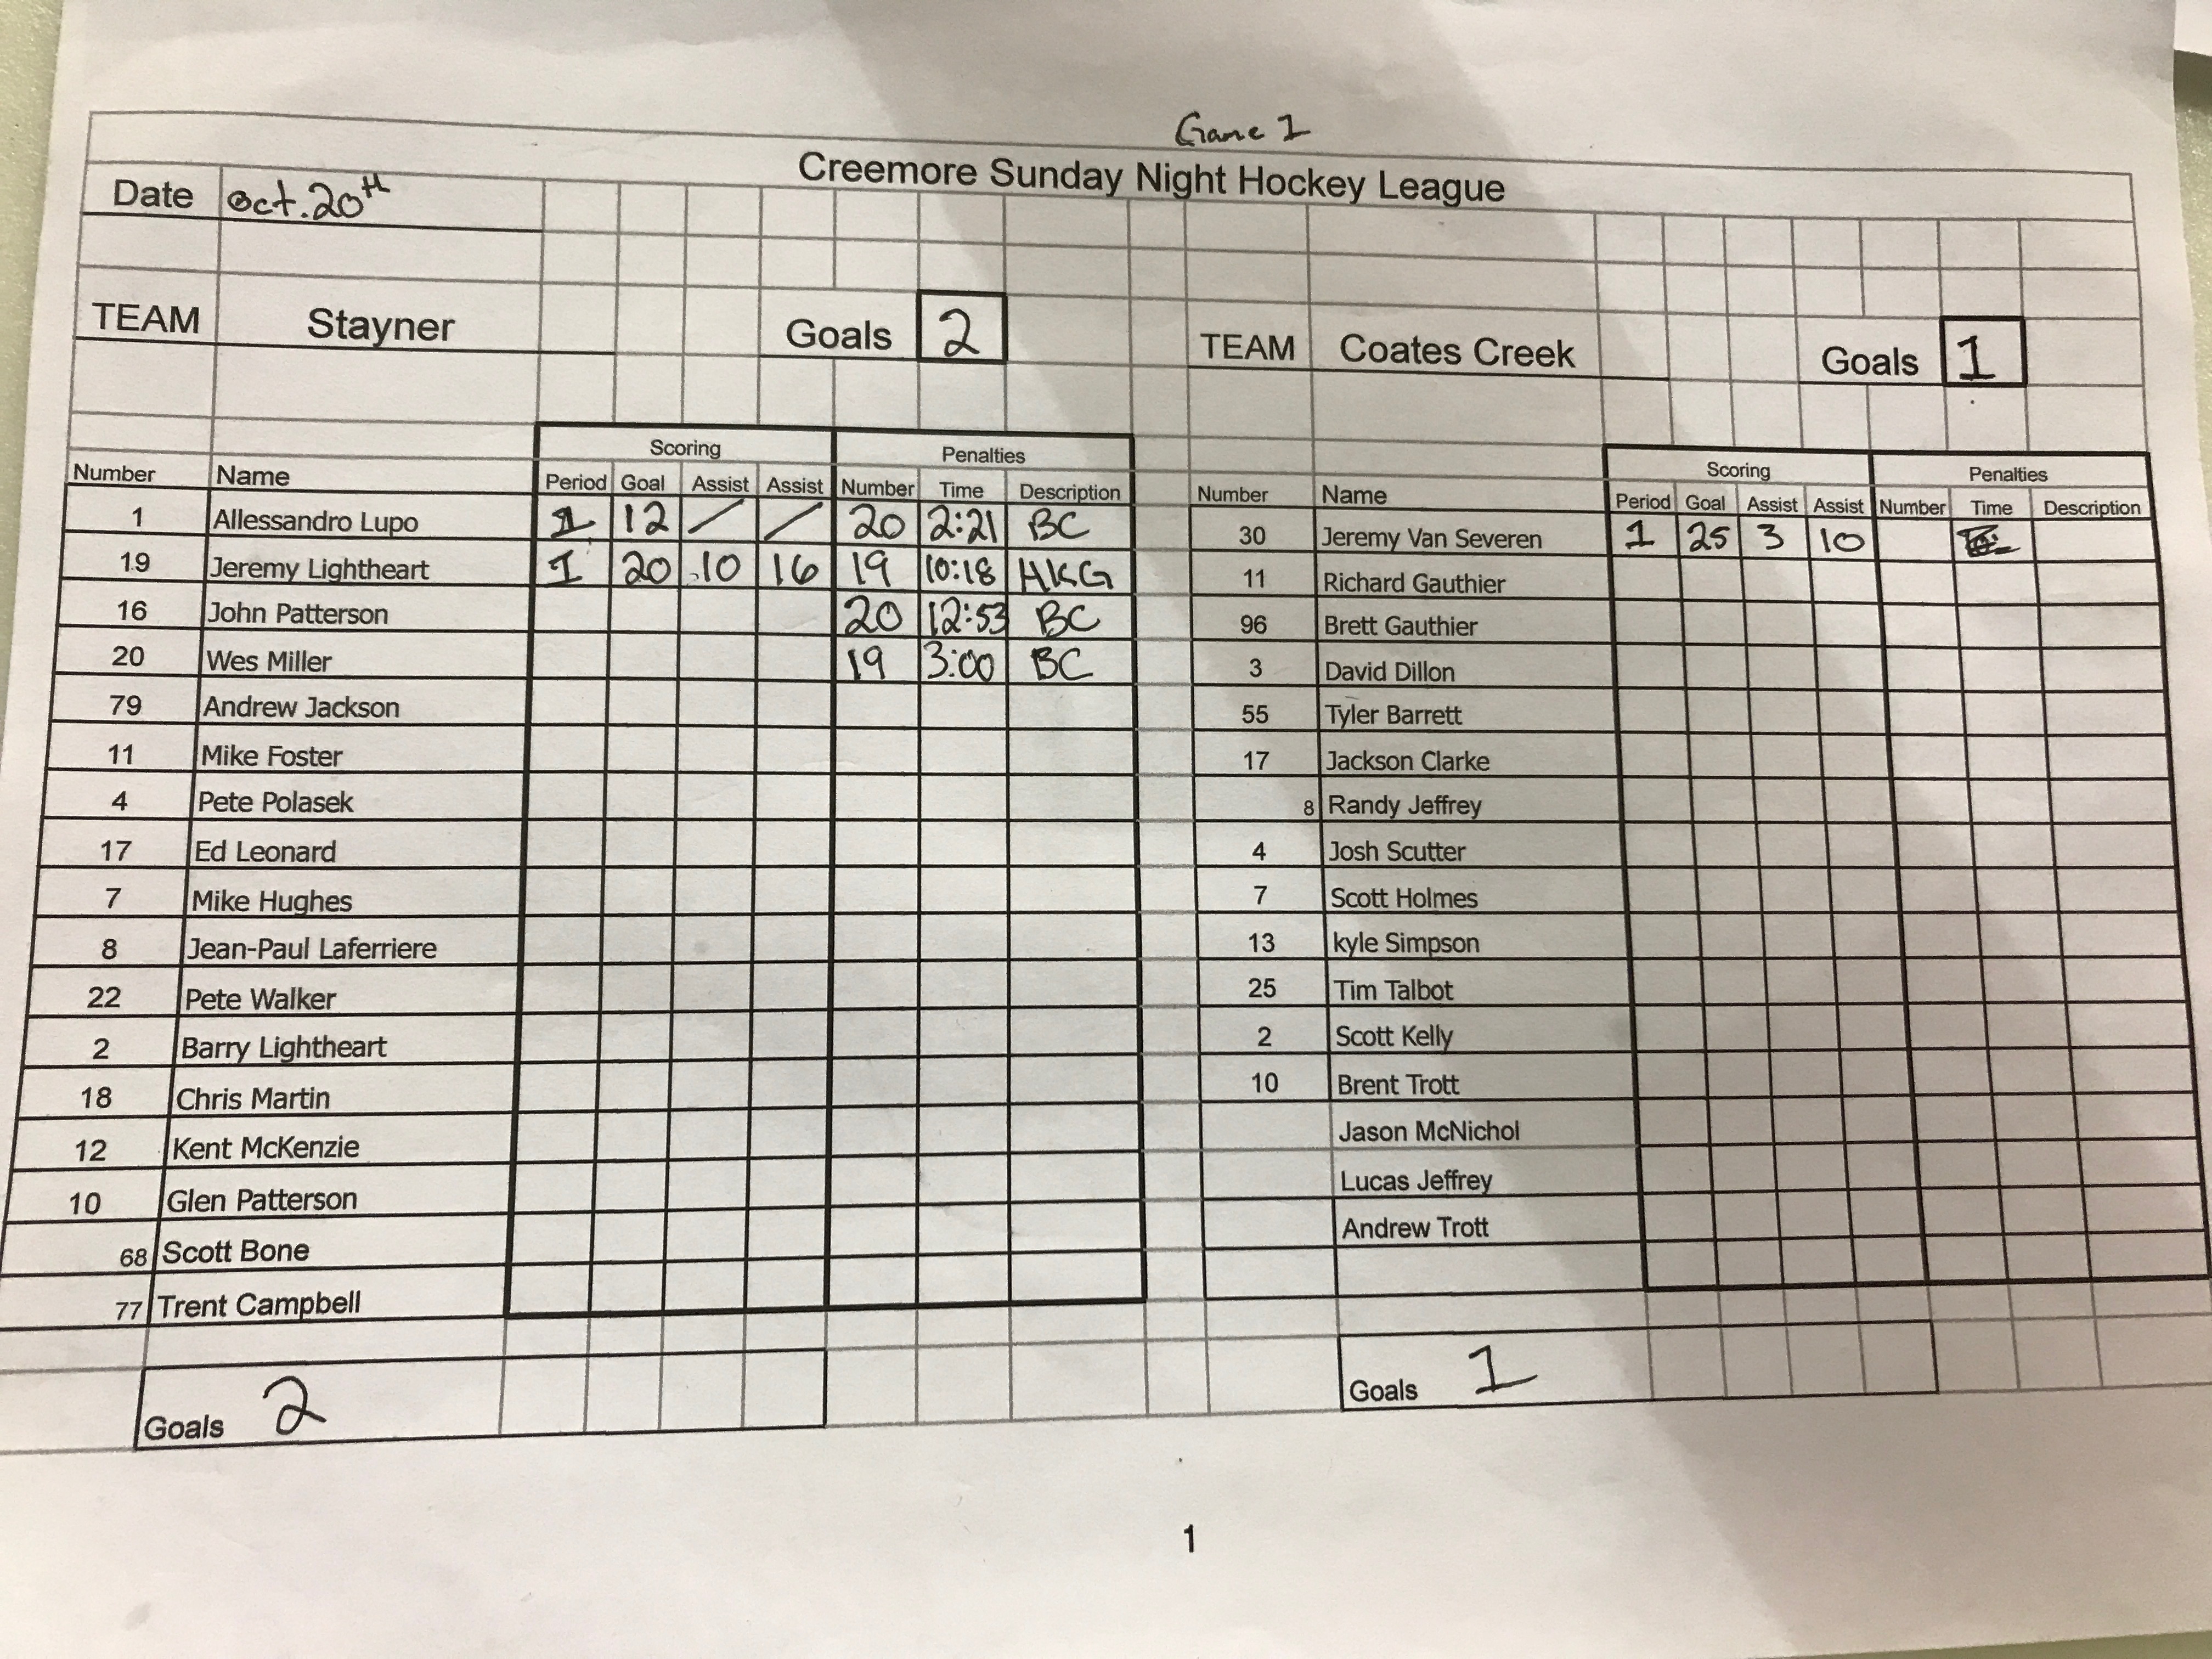 Game 1
Creemore Sunday Night Hockey League
Date oct. 20th
TEAM Stayner Goals 2
TEAM Coates Creek Goals 1
Scoring Penalties
Number Name Period Goal Assist Assist Number Time Description
1 Allessandro Lupo 1 12 / / 20 2:21 BC
19 Jeremy Lightheart 1 20 10 16 19 10:18 HKG
16 John Patterson 20 12:53 BC
20 Wes Miller 19 3:00 BC
79 Andrew Jackson
11 Mike Foster
4 Pete Polasek
17 Ed Leonard
7 Mike Hughes
8 Jean-Paul Laferriere
22 Pete Walker
2 Barry Lightheart
18 Chris Martin
12 Kent McKenzie
10 Glen Patterson
68 Scott Bone
77 Trent Campbell
Goals 2
Scoring Penalties
Number Name Period Goal Assist Assist Number Time Description
30 Jeremy Van Severen 1 25 3 10
11 Richard Gauthier
96 Brett Gauthier
3 David Dillon
55 Tyler Barrett
17 Jackson Clarke
8 Randy Jeffrey
4 Josh Scutter
7 Scott Holmes
13 kyle Simpson
25 Tim Talbot
2 Scott Kelly
10 Brent Trott
Jason McNichol
Lucas Jeffrey
Andrew Trott
Goals 1
1